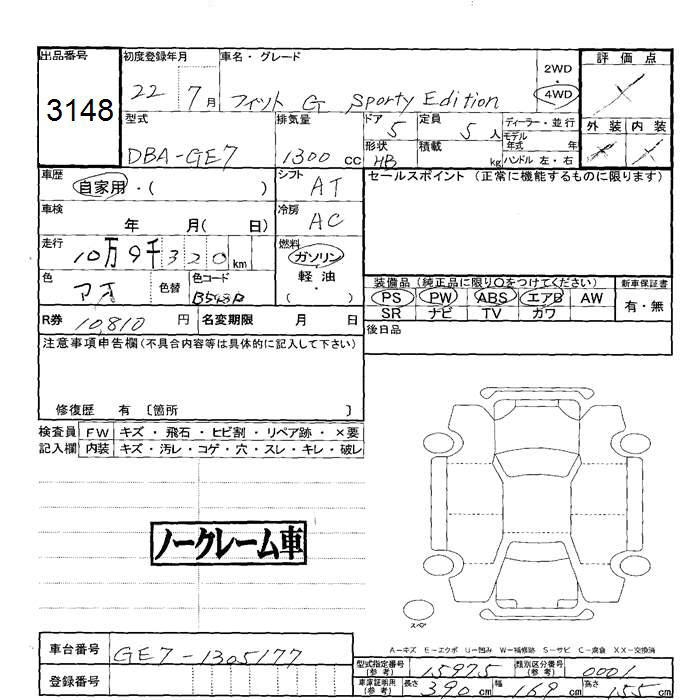 出品番号
3148
初度登録年月
22 7月
車名・グレード
フィット G Sporty Edition
2WD
・
4WD
評価点
外装 内装
型式
DBA-GE7
排気量
1300 cc
ドア
5
定員
5人
ディーラー・並行
形状
HB
積載
kg
モデル年式 年
ハンドル 左・右
車歴
自家用・( )
シフト
AT
セールスポイント (正常に機能するものに限ります)
車検
年 月( 日)
冷房
AC
走行
10万9千320km
燃料
ガソリン
軽油
・
( )
色
アオ
色替
色コード
B548P
装備品(純正品に限り○をつけてください)
PS PW ABS エアB AW
SR ナビ TV カワ
新車保証書
有・無
R券 10,810円
名変期限 月 日
後日品
注意事項申告欄(不具合内容等は具体的に記入して下さい)
修復歴 有 〔箇所 〕
検査員記入欄
FW キズ・飛石・ヒビ割・リペア跡・×要
内装 キズ・汚レ・コゲ・穴・スレ・キレ・破レ
ノークレーム車
スペア
A-キズ E-エクボ U-凹み W-補修跡 S-サビ C-腐食 XX-交換済
車台番号
GE7-1305177
登録番号
型式指定番号(参考) 15975
類別区分番号(参考) 0001
車庫証明用(参考) 長さ 390cm 幅 169cm 高さ 155cm